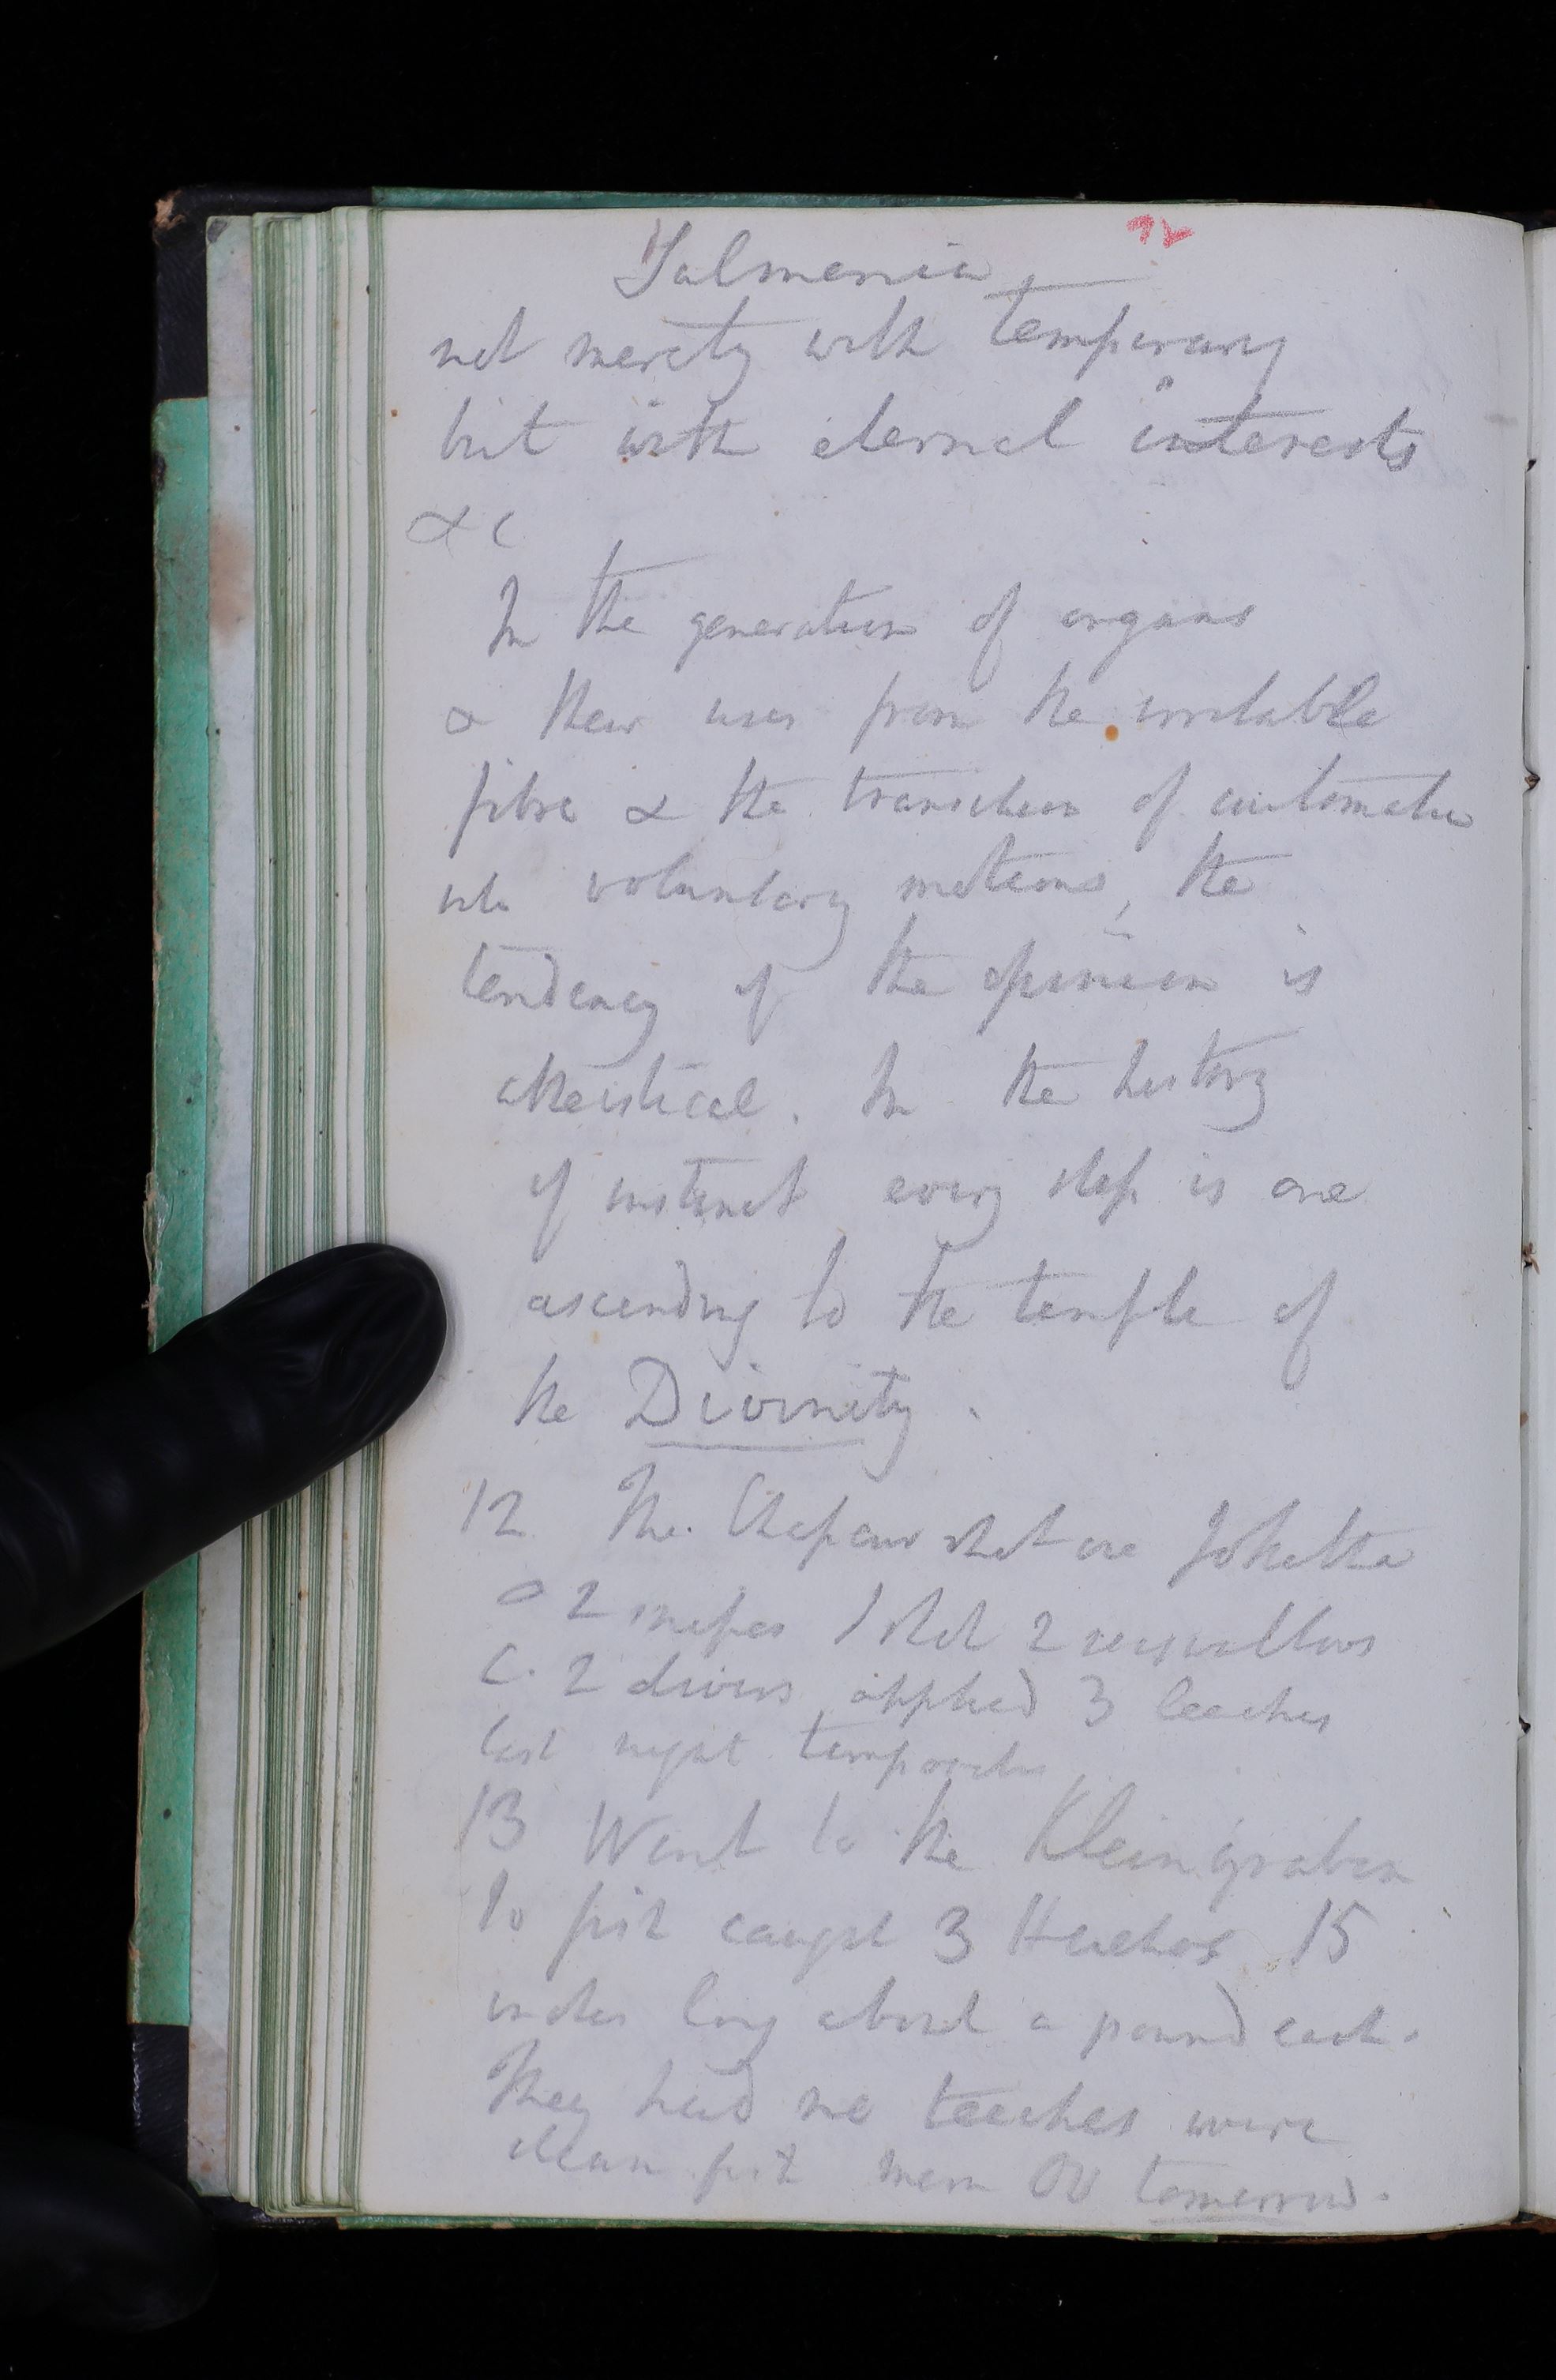 Salmonia
not merely with temporary
but with eternal interests
&c
In the generation of organs
& their uses from the irritable
fibre & the transition of automatic
into voluntary motions, the
tendency of the opinion is
atheistical. In the history
of instinct every step is one
ascending to the temple of
the Divinity.
12 The shot one
2 snipes I shot 2
C. 2 divers applied 3 leeches
last night
13 Went to the Kleingraben
to fish caught 3 Huchos 15
inches long about a pound each.
They had no leeches were
clean fish mem OV tomorrow.